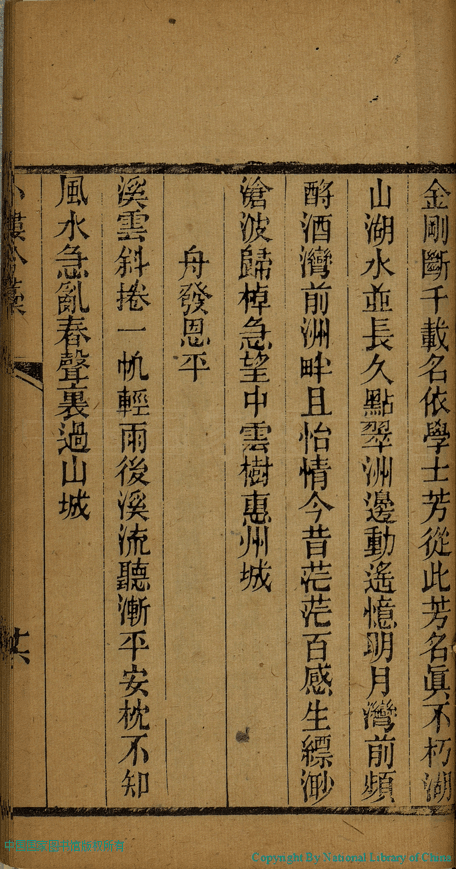 金剛斷千載名依學士芳從此芳名眞不朽湖
山湖水並長久點翠洲邊動遙憶明月灣前頻
酹酒灣前洲畔且怡情今昔茫茫百感生縹渺
滄波歸棹急望中雲樹惠州城
舟發恩平
溪雲斜捲一帆輕雨後溪流聽漸平安枕不知
風水急亂春聲裏過山城
Copyright By National Library of China